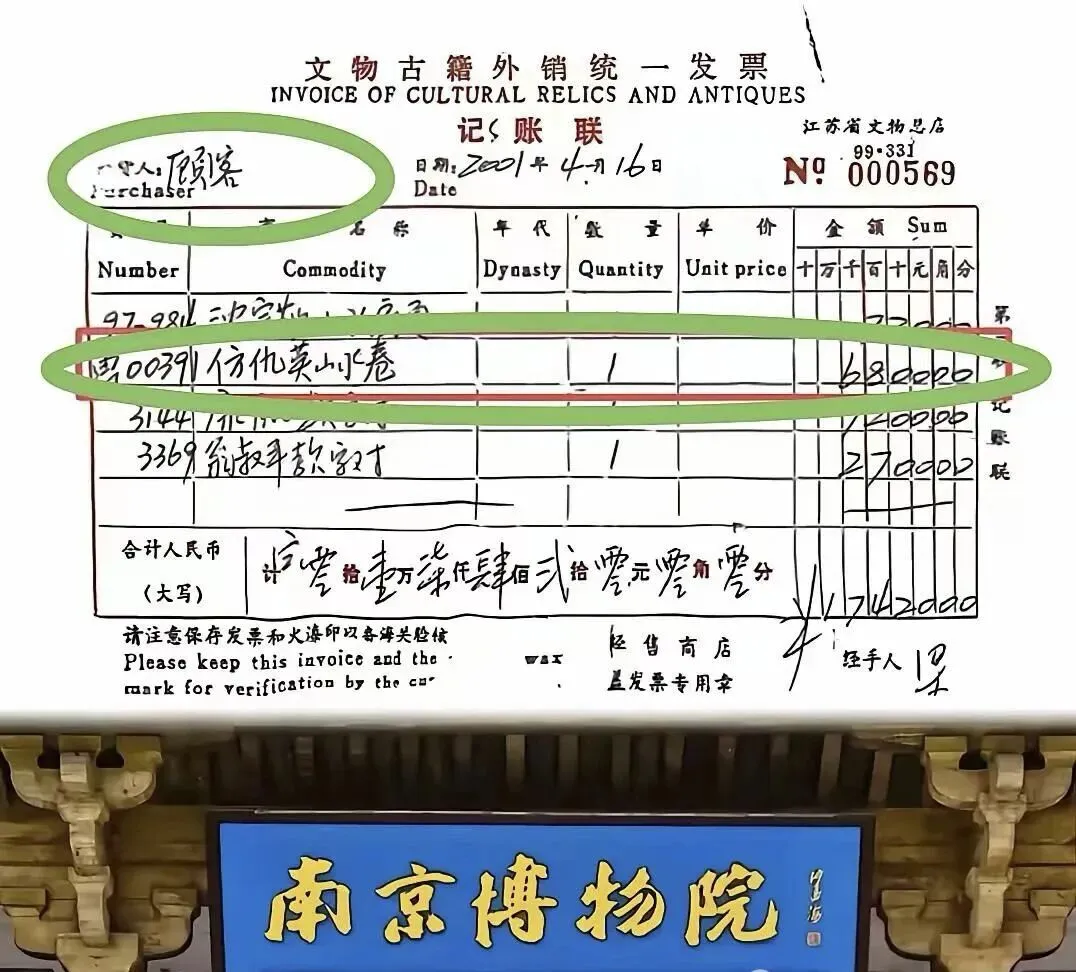 文物古籍外销统一发票
INVOICE OF CULTURAL RELICS AND ANTIQUES
记账联
江苏省文物总店
99-331
货人:顾客
Purchaser
日期:2001年4月16日
Date
Nº 000569
名称 年代 数量 单价 金额 Sum
Number Commodity Dynasty Quantity Unit price 十万千百十元角分
97-984
0039 仿仇英山水卷 1 680000
3144 1 720000
3369 翁叔平款字对 1 270000
合计人民币
(大写)
计 零拾壹万柒仟肆佰贰拾零元零角零分
¥1742000
记账联
请注意保存发票和火漆印以备海关验核
Please keep this invoice and the wax
mark for verification by the cus
经售商店
盖发票专用章
经手人
南京博物院